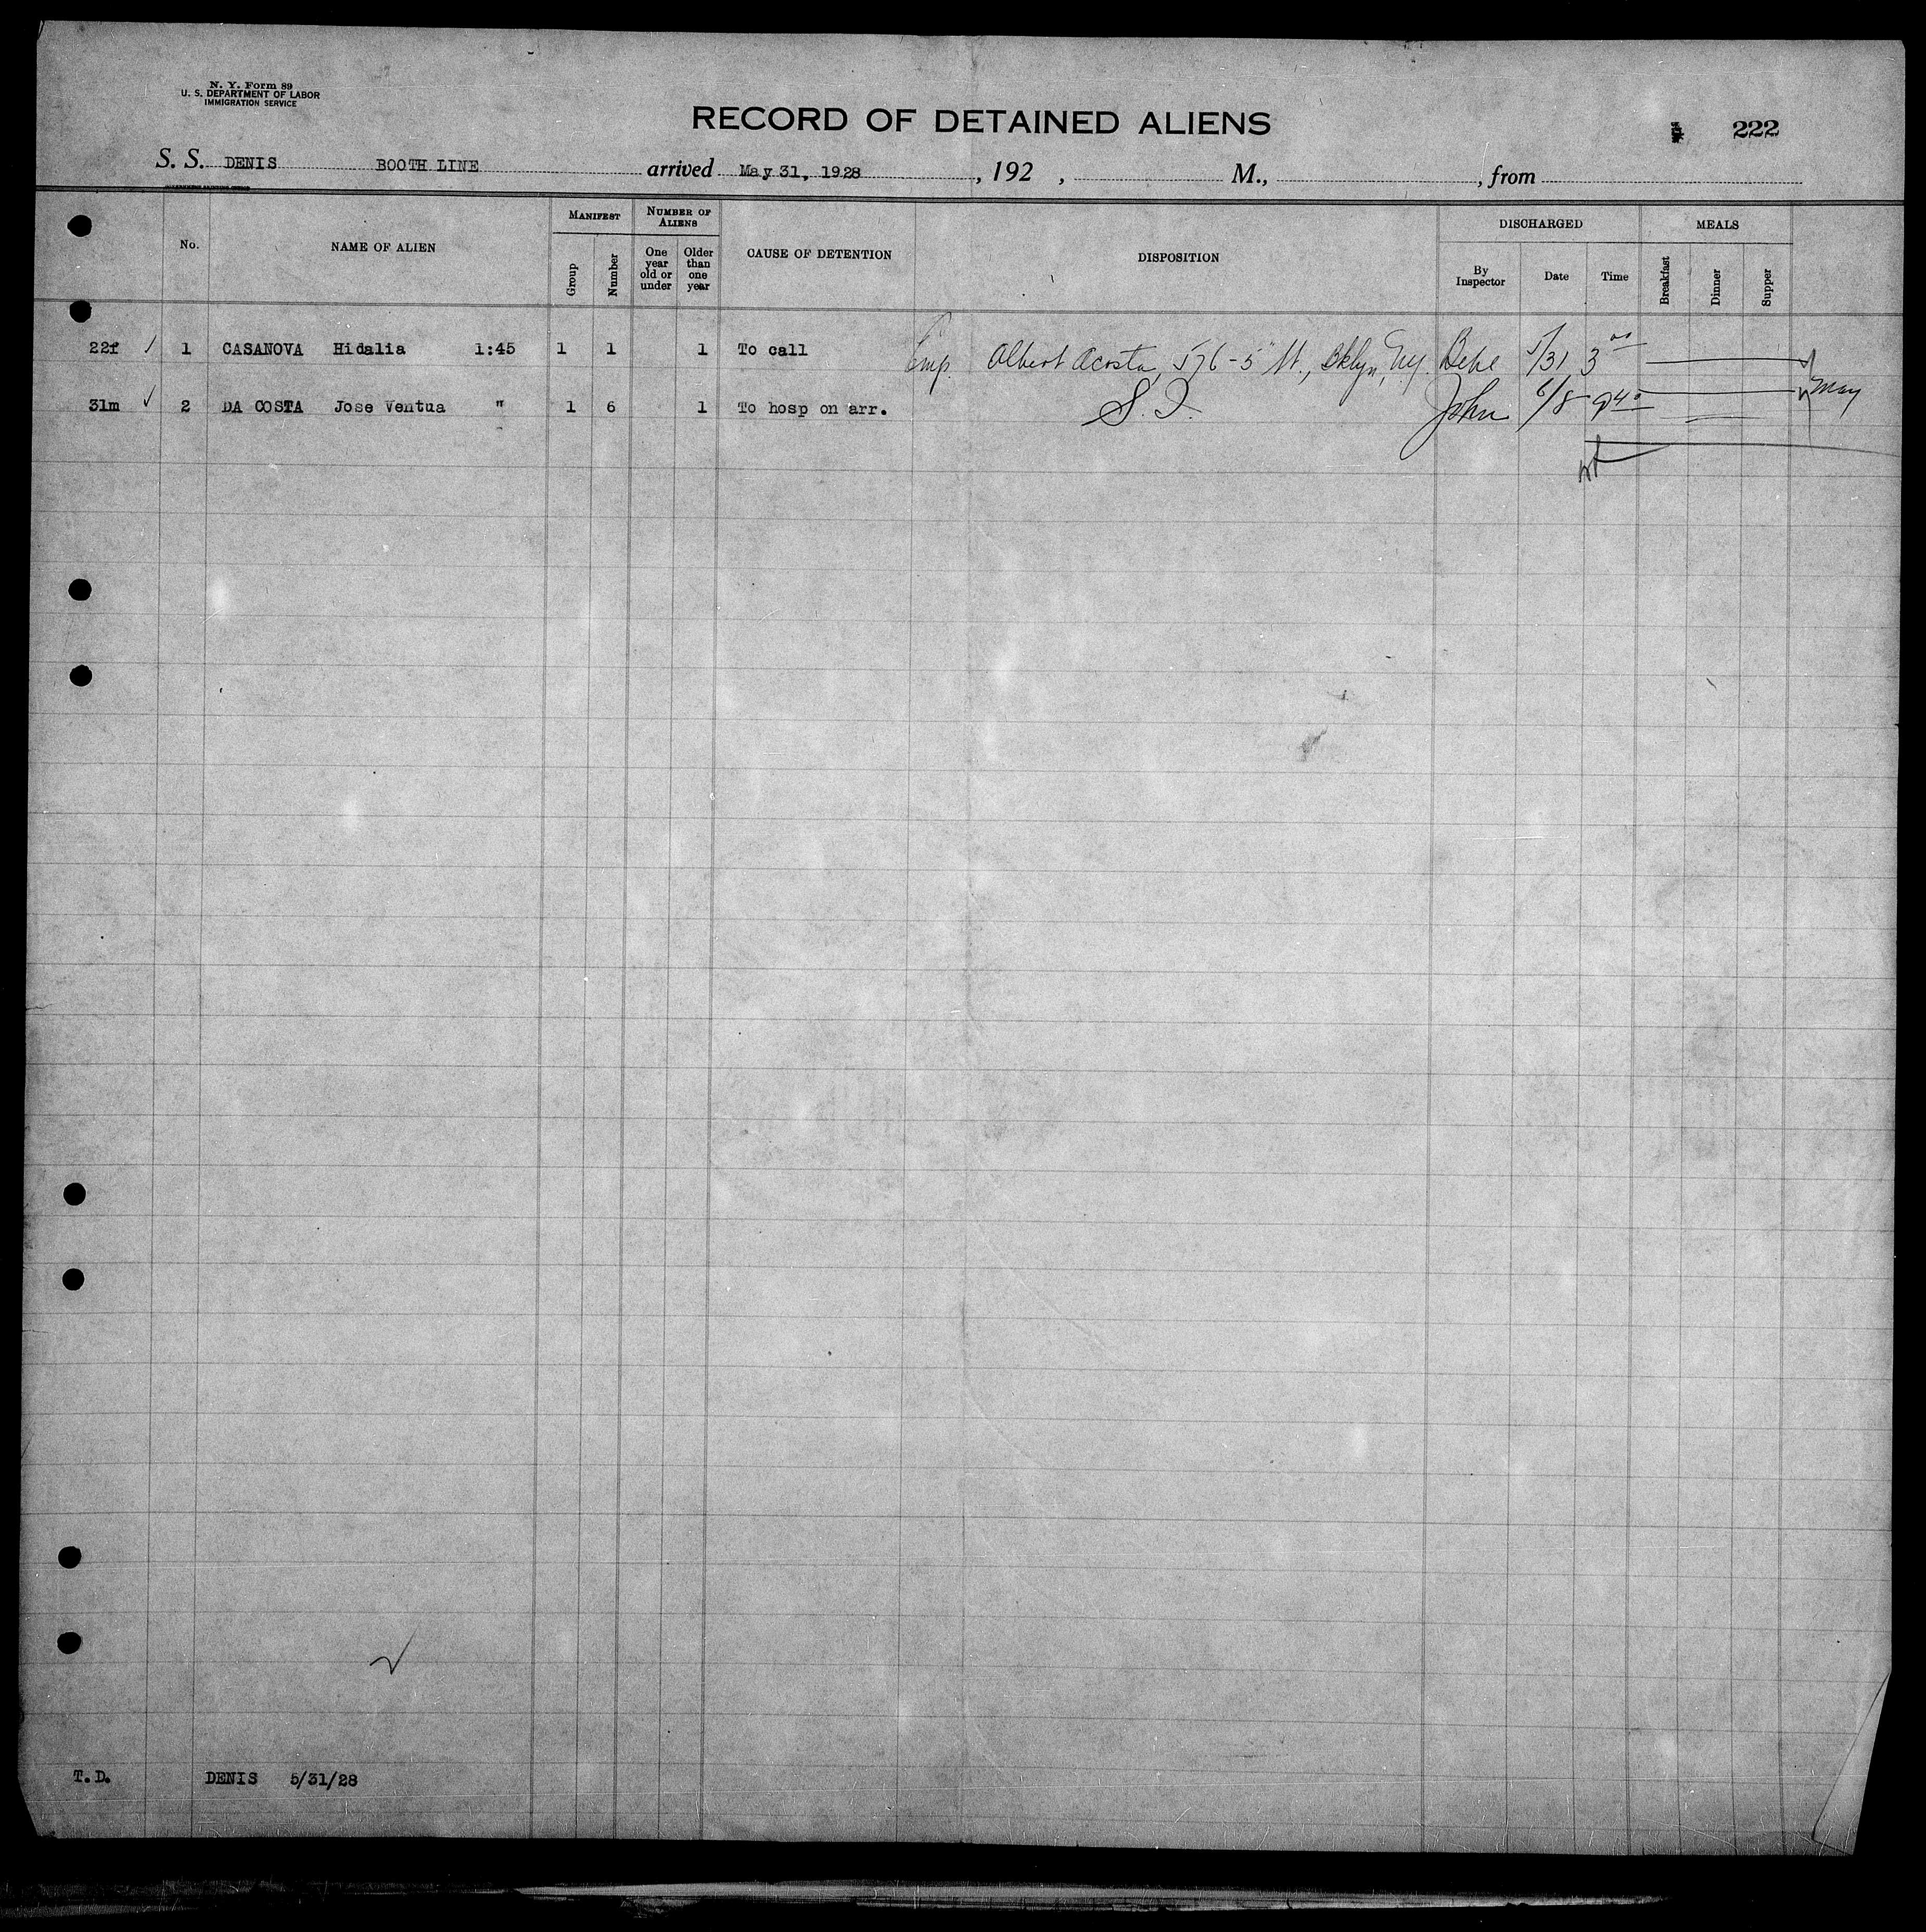 N. Y. Form 89
U. S. DEPARTMENT OF LABOR
IMMIGRATION SERVICE
RECORD OF DETAINED ALIENS
222
S. S. DENIS BOOTH LINE arrived May 31, 1928, 192 , M., , from
No.
NAME OF ALIEN
MANIFEST
Group
Number
NUMBER OF ALIENS
One year old or under
Older than one year
CAUSE OF DETENTION
DISPOSITION
DISCHARGED
By Inspector
Date
Time
MEALS
Breakfast
Dinner
Supper
22f 1 CASANOVA Hidalia 1:45 1 1 1 To call Emp. Albert Acosta, 576-5" St., Bklyn, Ny. 5/31 3 00
31m 2 DA COSTA Jose Ventua " 1 6 1 To hosp on arr. S. I. John 6/8 9 40 May
T.D. DENIS 5/31/28